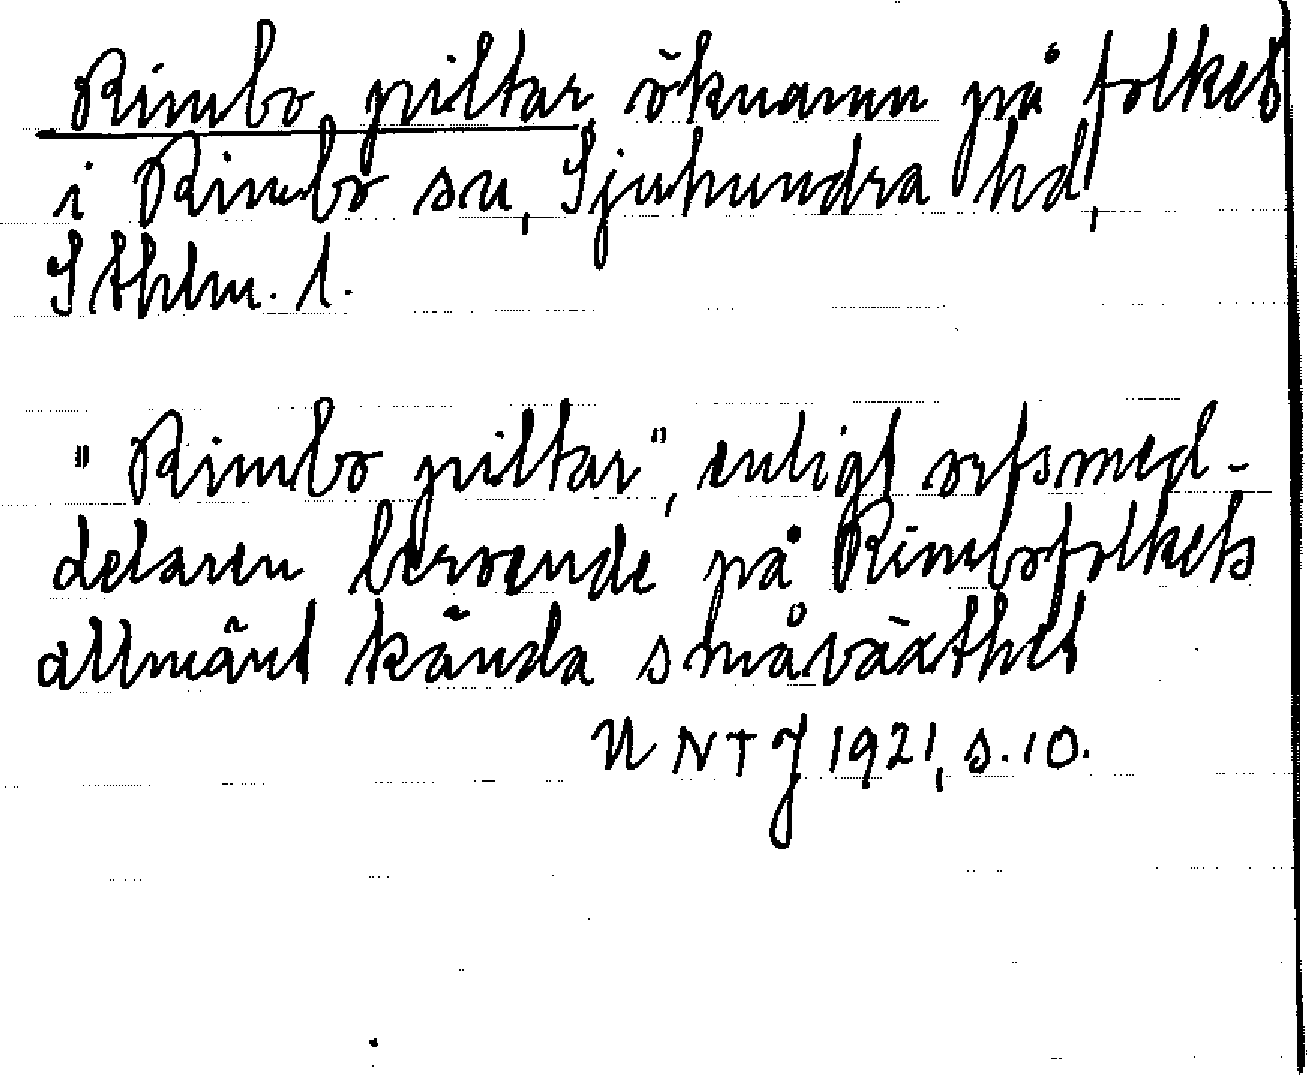 Rimbo piltar, öknamn på folket
i Rimbo sn, Sjuhundra hd,
Sthlm. l.
"Rimbo piltar", enligt ortsmed-
delaren beroende på Rimbofolkets
allmänt kända småväxthet
UNTJ 1921, s. 10.